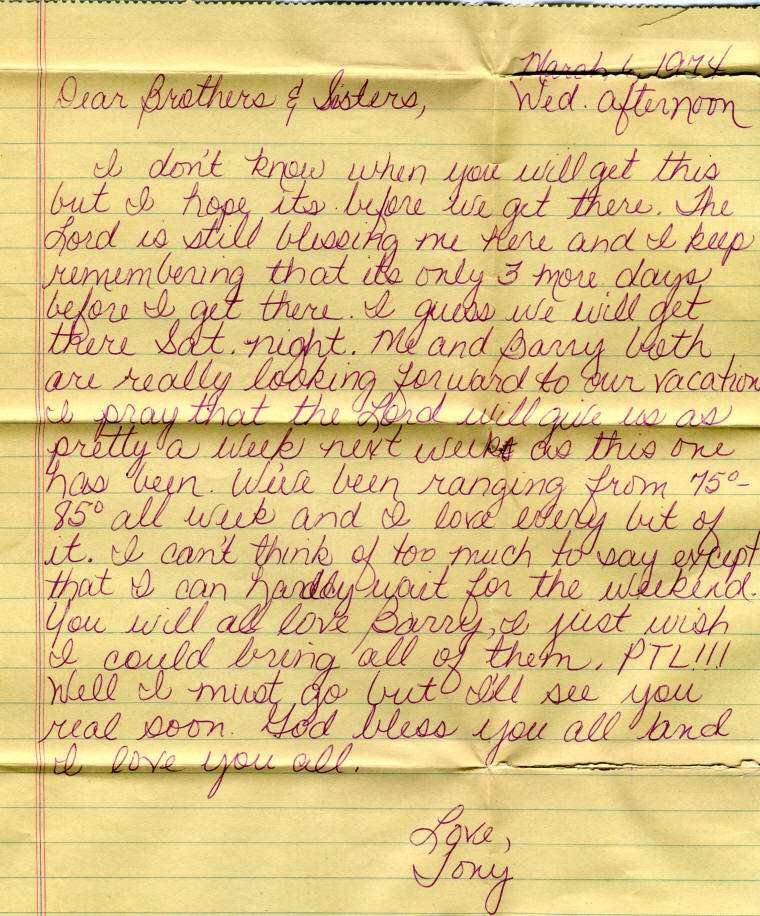 March 6, 1974
Dear Brothers & Sisters,
Wed. afternoon
I don't know when you will get this
but I hope its before we get there. The
Lord is still blessing me here and I keep
remembering that its only 3 more days
before I get there. I guess we will get
there Sat. night. Me and Barry both
are really looking forward to our vacation
I pray that the Lord will give us as
pretty a week next week as this one
has been. We've been ranging from 75°-
85° all week and I love every bit of
it. I can't think of too much to say except
that I can hardly wait for the weekend.
You will all love Barry, I just wish
I could bring all of them. PTL!!!
Well I must go but I'll see you
real soon. God bless you all and
I love you all.
Love,
Tony